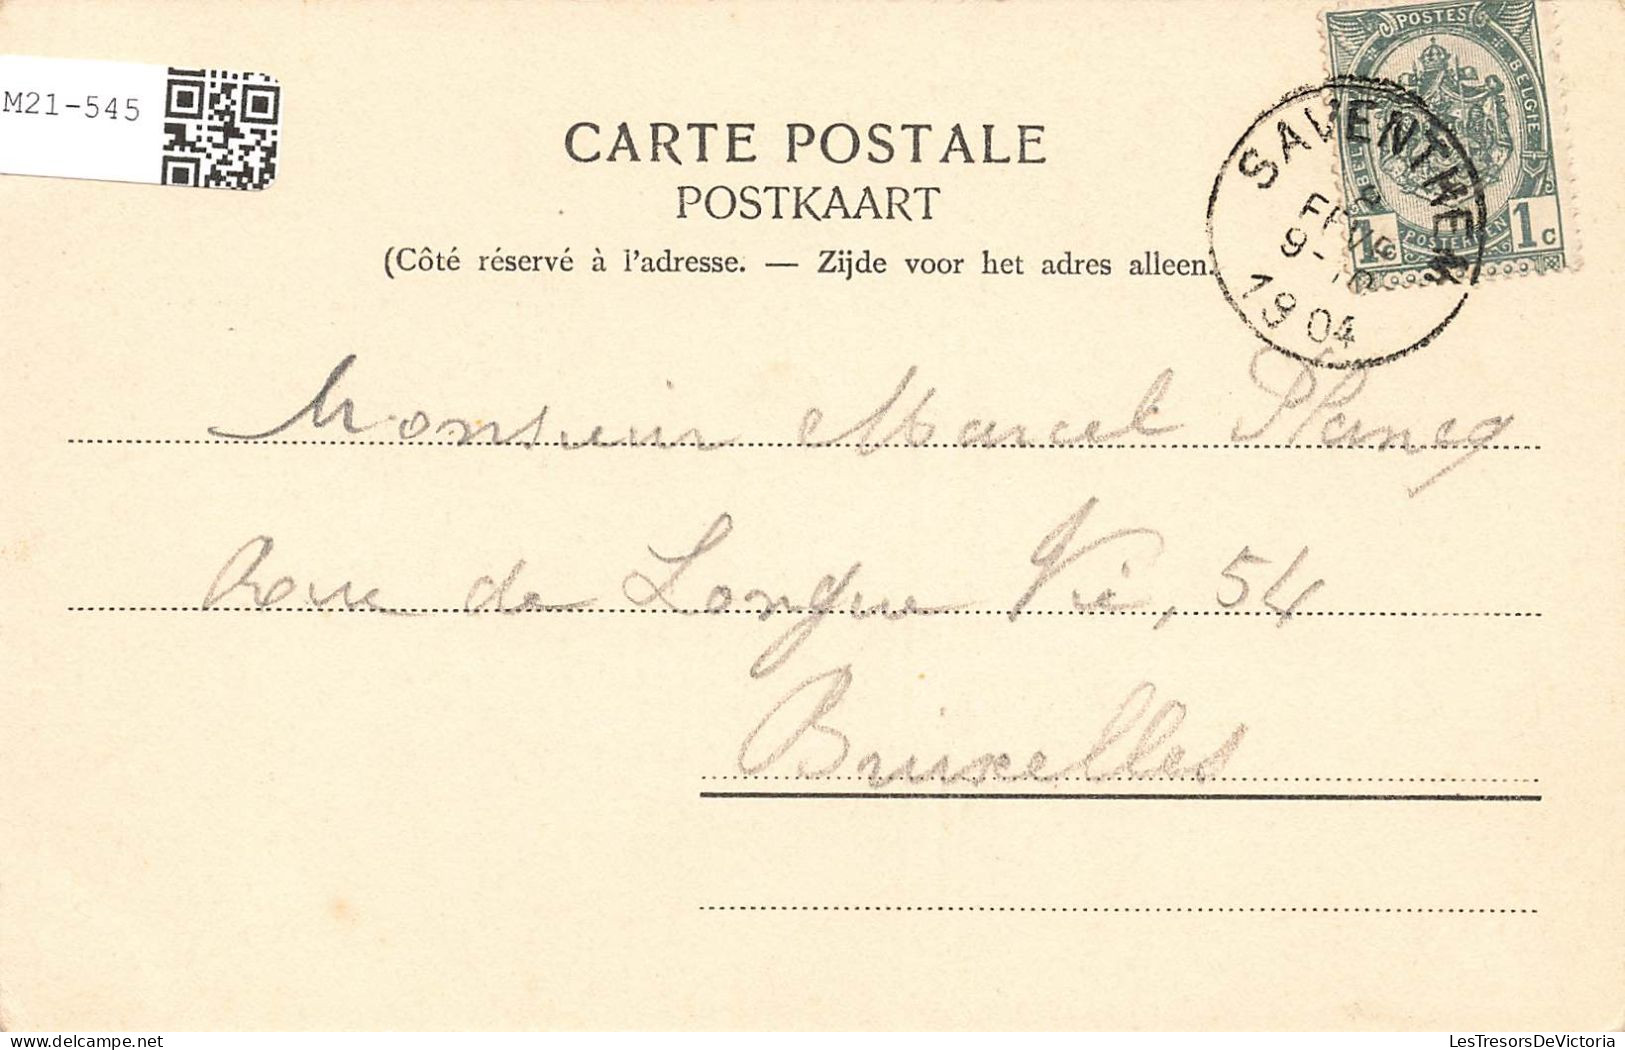 M21-545
POSTES
BELGIE
POSTERIJEN
1c 1c
SAVENTHEM
2
FEVR
9-10
1904
CARTE POSTALE
POSTKAART
(Côté réservé à l'adresse. — Zijde voor het adres alleen.
Monsieur Marcel Plancq
Rue de Longue Vie, 54
Bruxelles
LesTresorsDeVictoria